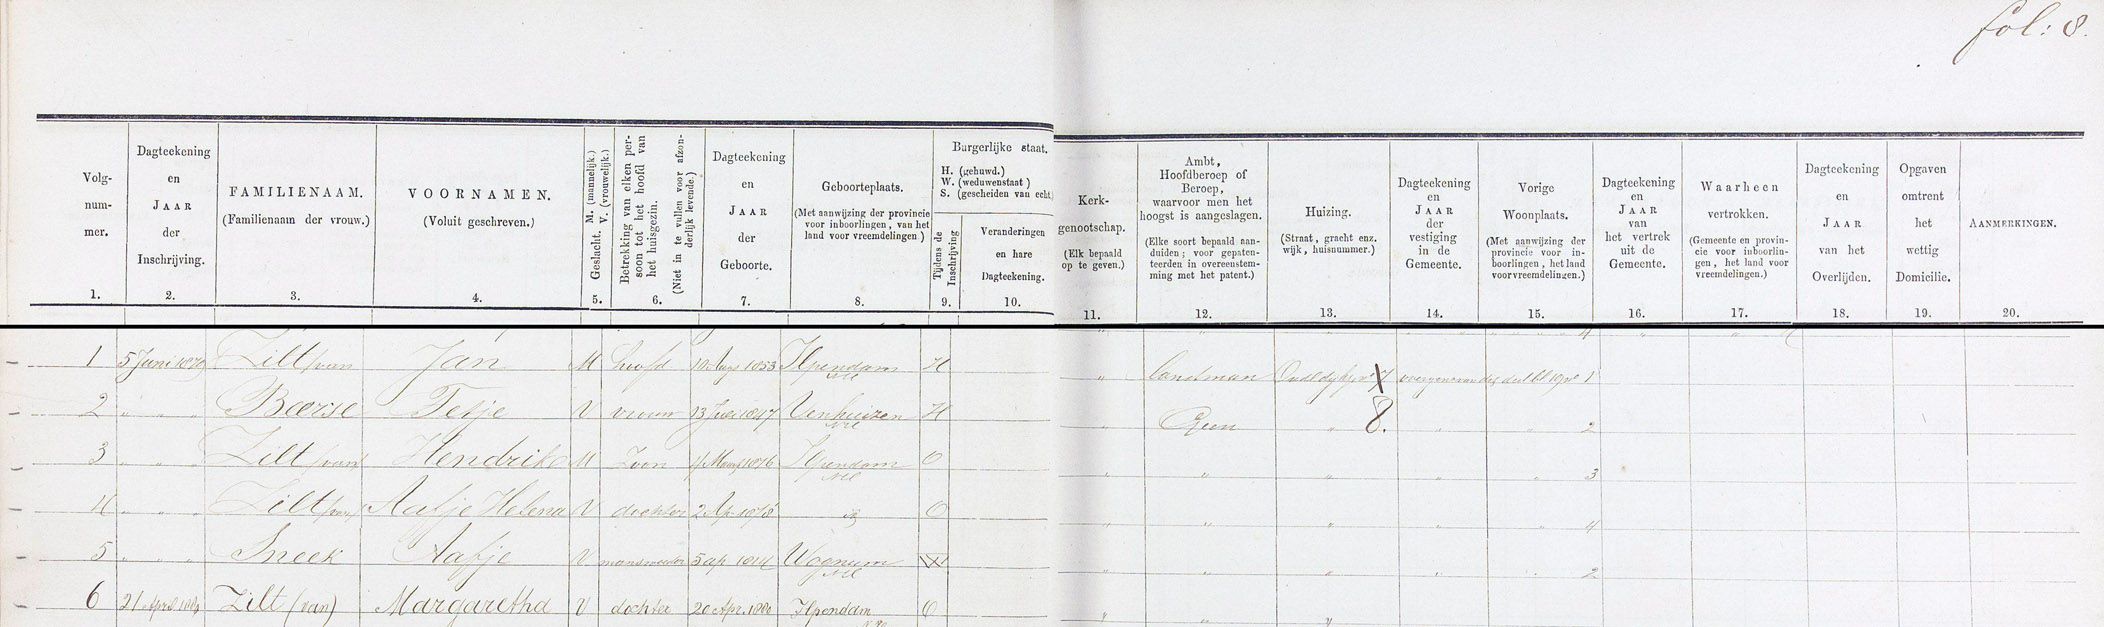 fol: 8.
Volg-
num-
mer.
1.
Dagteekening
en
JAAR
der
Inschrijving.
2.
FAMILIENAAM.
(Familienaam der vrouw.)
3.
VOORNAMEN.
(Voluit geschreven.)
4.
Geslacht. M. (mannelijk.)
V. (vrouwelijk.)
5.
Betrekking van elken per-
soon tot het hoofd van
het huisgezin.
(Niet in te vullen voor afzon-
derlijk levende.)
6.
Dagteekening
en
JAAR
der
Geboorte.
7.
Geboorteplaats.
(Met aanwijzing der provincie
voor inboorlingen, van het
land voor vreemdelingen.)
8.
Burgerlijke staat.
H. (gehuwd.)
W. (weduwenstaat)
S. (gescheiden van echt.)
Tijdens de
Inschrijving
9.
Veranderingen
en hare
Dagteekening.
10.
Kerk-
genootschap.
(Elk bepaald
op te geven.)
11.
Ambt,
Hoofdberoep of
Beroep,
waarvoor men het
hoogst is aangeslagen.
(Elke soort bepaald aan-
duiden; voor gepaten-
teerden in overeenstem-
ming met het patent.)
12.
Huizing.
(Straat, gracht enz.
wijk, huisnummer.)
13.
Dagteekening
en
JAAR
der
vestiging
in de
Gemeente.
14.
Vorige
Woonplaats.
(Met aanwijzing der
provincie voor in-
boorlingen, het land
voor vreemdelingen.)
15.
Dagteekening
en
JAAR
van
het vertrek
uit de
Gemeente.
16.
Waarheen
vertrokken.
(Gemeente en provin-
cie voor inboorlin-
gen, het land voor
vreemdelingen.)
17.
Dagteekening
en
JAAR
van het
Overlijden.
18.
Opgaven
omtrent
het
wettig
Domicilie.
19.
AANMERKINGEN.
20.
1 5 Juni 1879 Zilt (van Jan M hoofd 10 Aug 1853 Ilpendam H " landman 1
2 " " " Beerse Tetje V vrouw 1847 Venhuizen H " Geen " 8. " " 2
3 " " " Zilt (van Hendrik M Zoon 4 Maart 1876 Ilpendam O " " " " " 3
4 " " " Zilt (van) Aafje Helena V dochter 2 Ap 1878 O " " " " " 4
5 " " " Sneek Aafje V 5 ap 1814 Wognum W " " " " " 2
6 21 April Zilt (van) Margaretha V dochter 20 Apr. 1880 Ilpendam O " " "